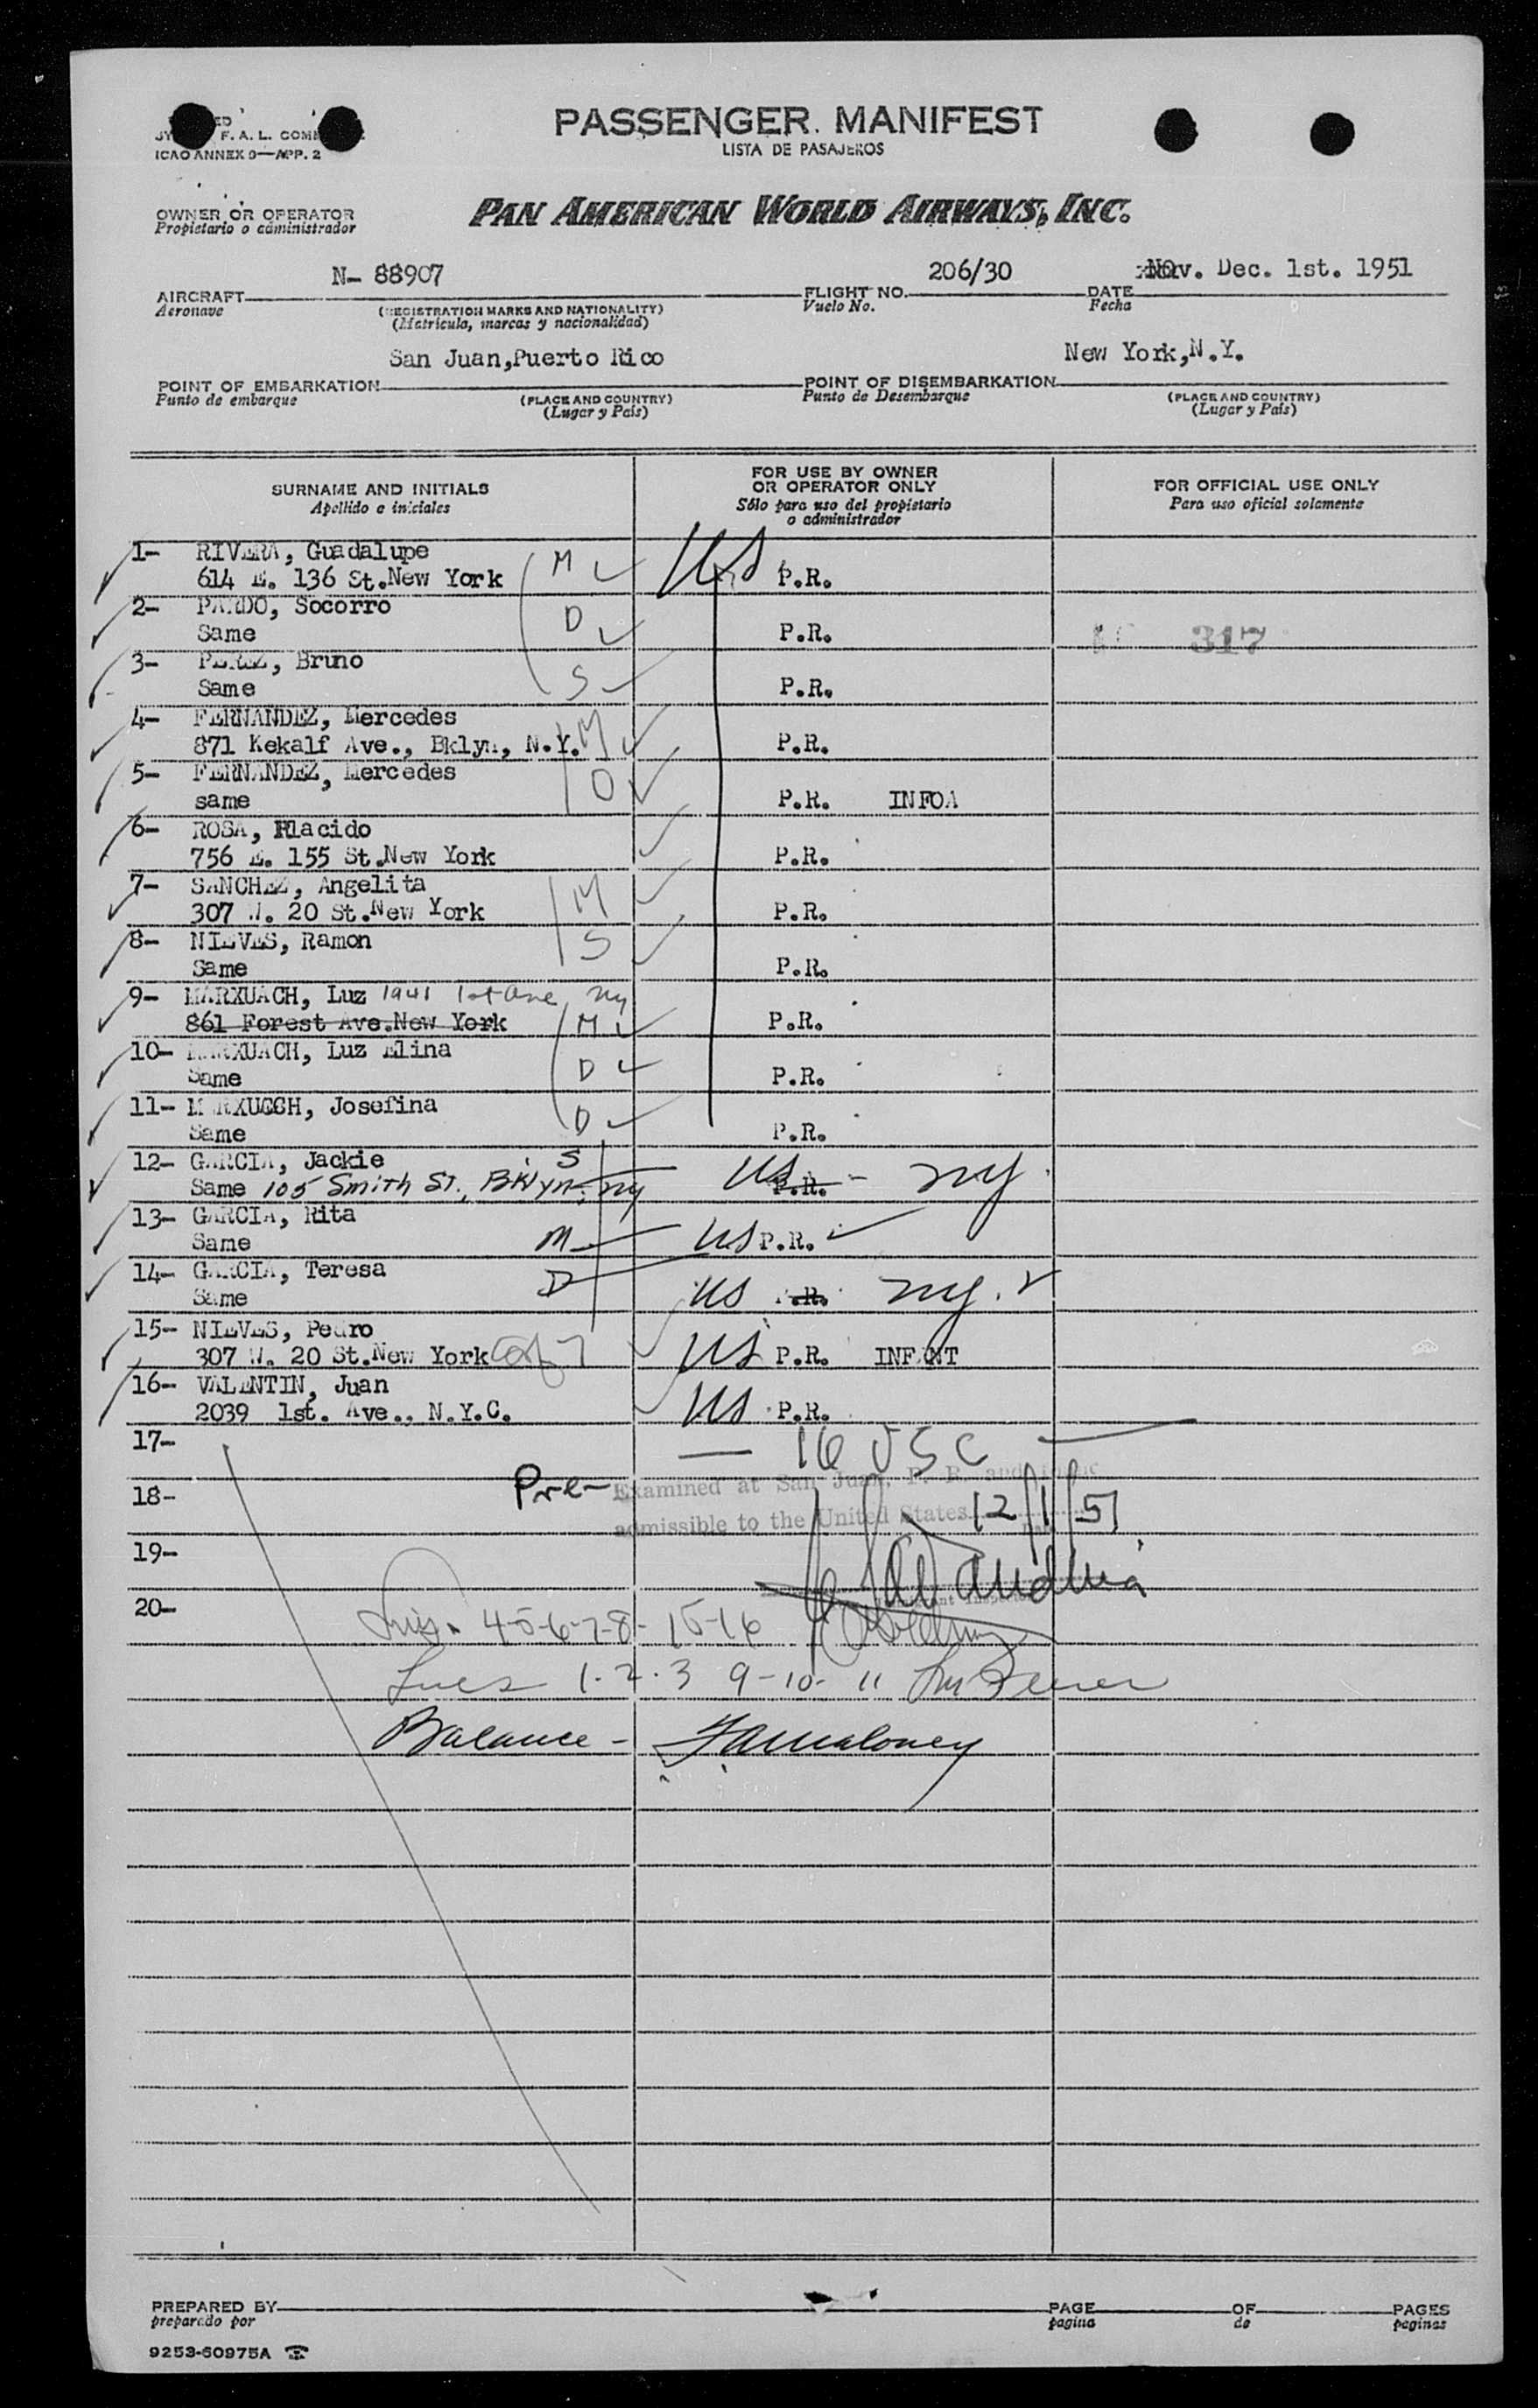 F. A. L.
ICAO ANNEX 9—APP. 2
PASSENGER MANIFEST
LISTA DE PASAJEROS
OWNER OR OPERATOR
Propietario o administrador
PAN AMERICAN WORLD AIRWAYS, INC.
N- 88907
206/30
Nov. Dec. 1st. 1951
AIRCRAFT
FLIGHT NO.
DATE
Aeronave
(REGISTRATION MARKS AND NATIONALITY)
Vuelo No.
Fecha
(Matricula, marcas y nacionalidad)
San Juan,Puerto Rico
New York,N.Y.
POINT OF EMBARKATION
POINT OF DISEMBARKATION
Punto de embarque
(PLACE AND COUNTRY)
Punto de Desembarque
(PLACE AND COUNTRY)
(Lugar y País)
(Lugar y País)
SURNAME AND INITIALS
Apellido e iniciales
FOR USE BY OWNER
OR OPERATOR ONLY
Sólo para uso del propietario
o administrador
FOR OFFICIAL USE ONLY
Para uso oficial solamente
1- RIVERA, Guadalupe
614 E. 136 St.New York M US P.R.
2- PARDO, Socorro
Same D P.R.
317
3- PEREZ, Bruno
Same S P.R.
4- FERNANDEZ, Mercedes
871 Kekalf Ave., Bklyn, N.Y. M P.R.
5- FERNANDEZ, Mercedes
same D P.R. INFOA
6- ROSA, Placido
756 E. 155 St.New York P.R.
7- SANCHEZ, Angelita
307 W. 20 St.New York M P.R.
8- NIEVES, Ramon
Same S P.R.
9- MARXUACH, Luz 1941 1st Ave, NY
861 Forest Ave.New York M P.R.
10- MARXUACH, Luz Elina
Same D P.R.
11- MARXUECH, Josefina
Same D P.R.
12- GARCIA, Jackie S
Same 105 Smith St., Bklyn, NY US P.R. - NY
13- GARCIA, Rita
Same M US P.R.
14- GARCIA, Teresa
Same D US P.R. NY.
15- NIEVES, Pedro
307 W. 20 St.New York C of 7 US P.R. INFANT
16- VALENTIN, Juan
2039 1st. Ave., N.Y.C. US P.R.
17-
— 16 USC —
Pre- Examined at San Juan, P. R. and
18-
admissible to the United States 12/1/51
19-
20-
4-5-6-7-8- 15-16
1-2-3 9-10- 11
Balance - Maloney
PREPARED BY
PAGE
OF
PAGES
preparado por
pagina
de
paginas
9253-60975A